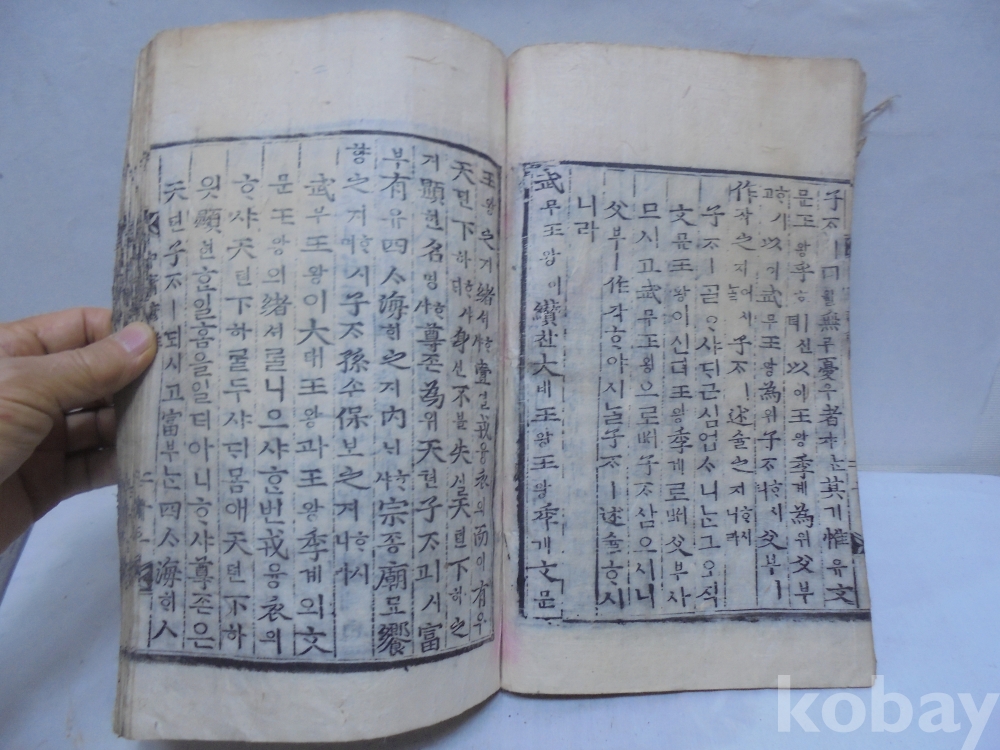 子ᄌᆞㅣ曰왈無무憂우者쟈ᄂᆞᆫ其기惟유文
문王왕乎호ㅣ신뎌以이王왕季계為위父부
ᄒᆞ시고以이武무王왕為위子ᄌᆞᄒᆞ시니父부ㅣ
作작之지어시ᄂᆞᆯ子ᄌᆞㅣ述슐之지ᄒᆞ시니라
子ᄌᆞㅣᄀᆞᆯᄋᆞ샤ᄃᆡ근심업스니ᄂᆞᆫ그오직
文문王왕이신뎌王왕季계로ᄡᅥ父부사
ᄆᆞ시고武무王왕으로ᄡᅥ子ᄌᆞ삼으시니
父부ㅣ作작ᄒᆞ야시ᄂᆞᆯ子ᄌᆞㅣ述슐ᄒᆞ시
니라
武무王왕이纘찬大태王왕王왕季계文문
王왕之지緖셔ᄒᆞ샤壹일戎융衣의而이有유
天텬下하ᄒᆞ샤ᄃᆡ身신不블失실天텬下하之
지顯현名명ᄒᆞ샤尊존為위天텬子ᄌᆞㅣ시고富
부有유四ᄉᆞ海ᄒᆡ之지內ᄂᆡᄒᆞ샤宗종廟묘饗
향之지ᄒᆞ시며子ᄌᆞ孫손保보之지ᄒᆞ시니라
武무王왕이大태王왕과王왕季계의文
문王왕의緖셔ᄅᆞᆯ니으샤ᄒᆞᆫ번戎융衣의
ᄒᆞ샤天텬下하ᄅᆞᆯ두샤ᄃᆡ몸애天텬下하
읫顯현ᄒᆞᆫ일홈을일티아니ᄒᆞ샤尊존은
天텬子ᄌᆞㅣ되시고富부ᄂᆞᆫ四ᄉᆞ海ᄒᆡ人
kobay